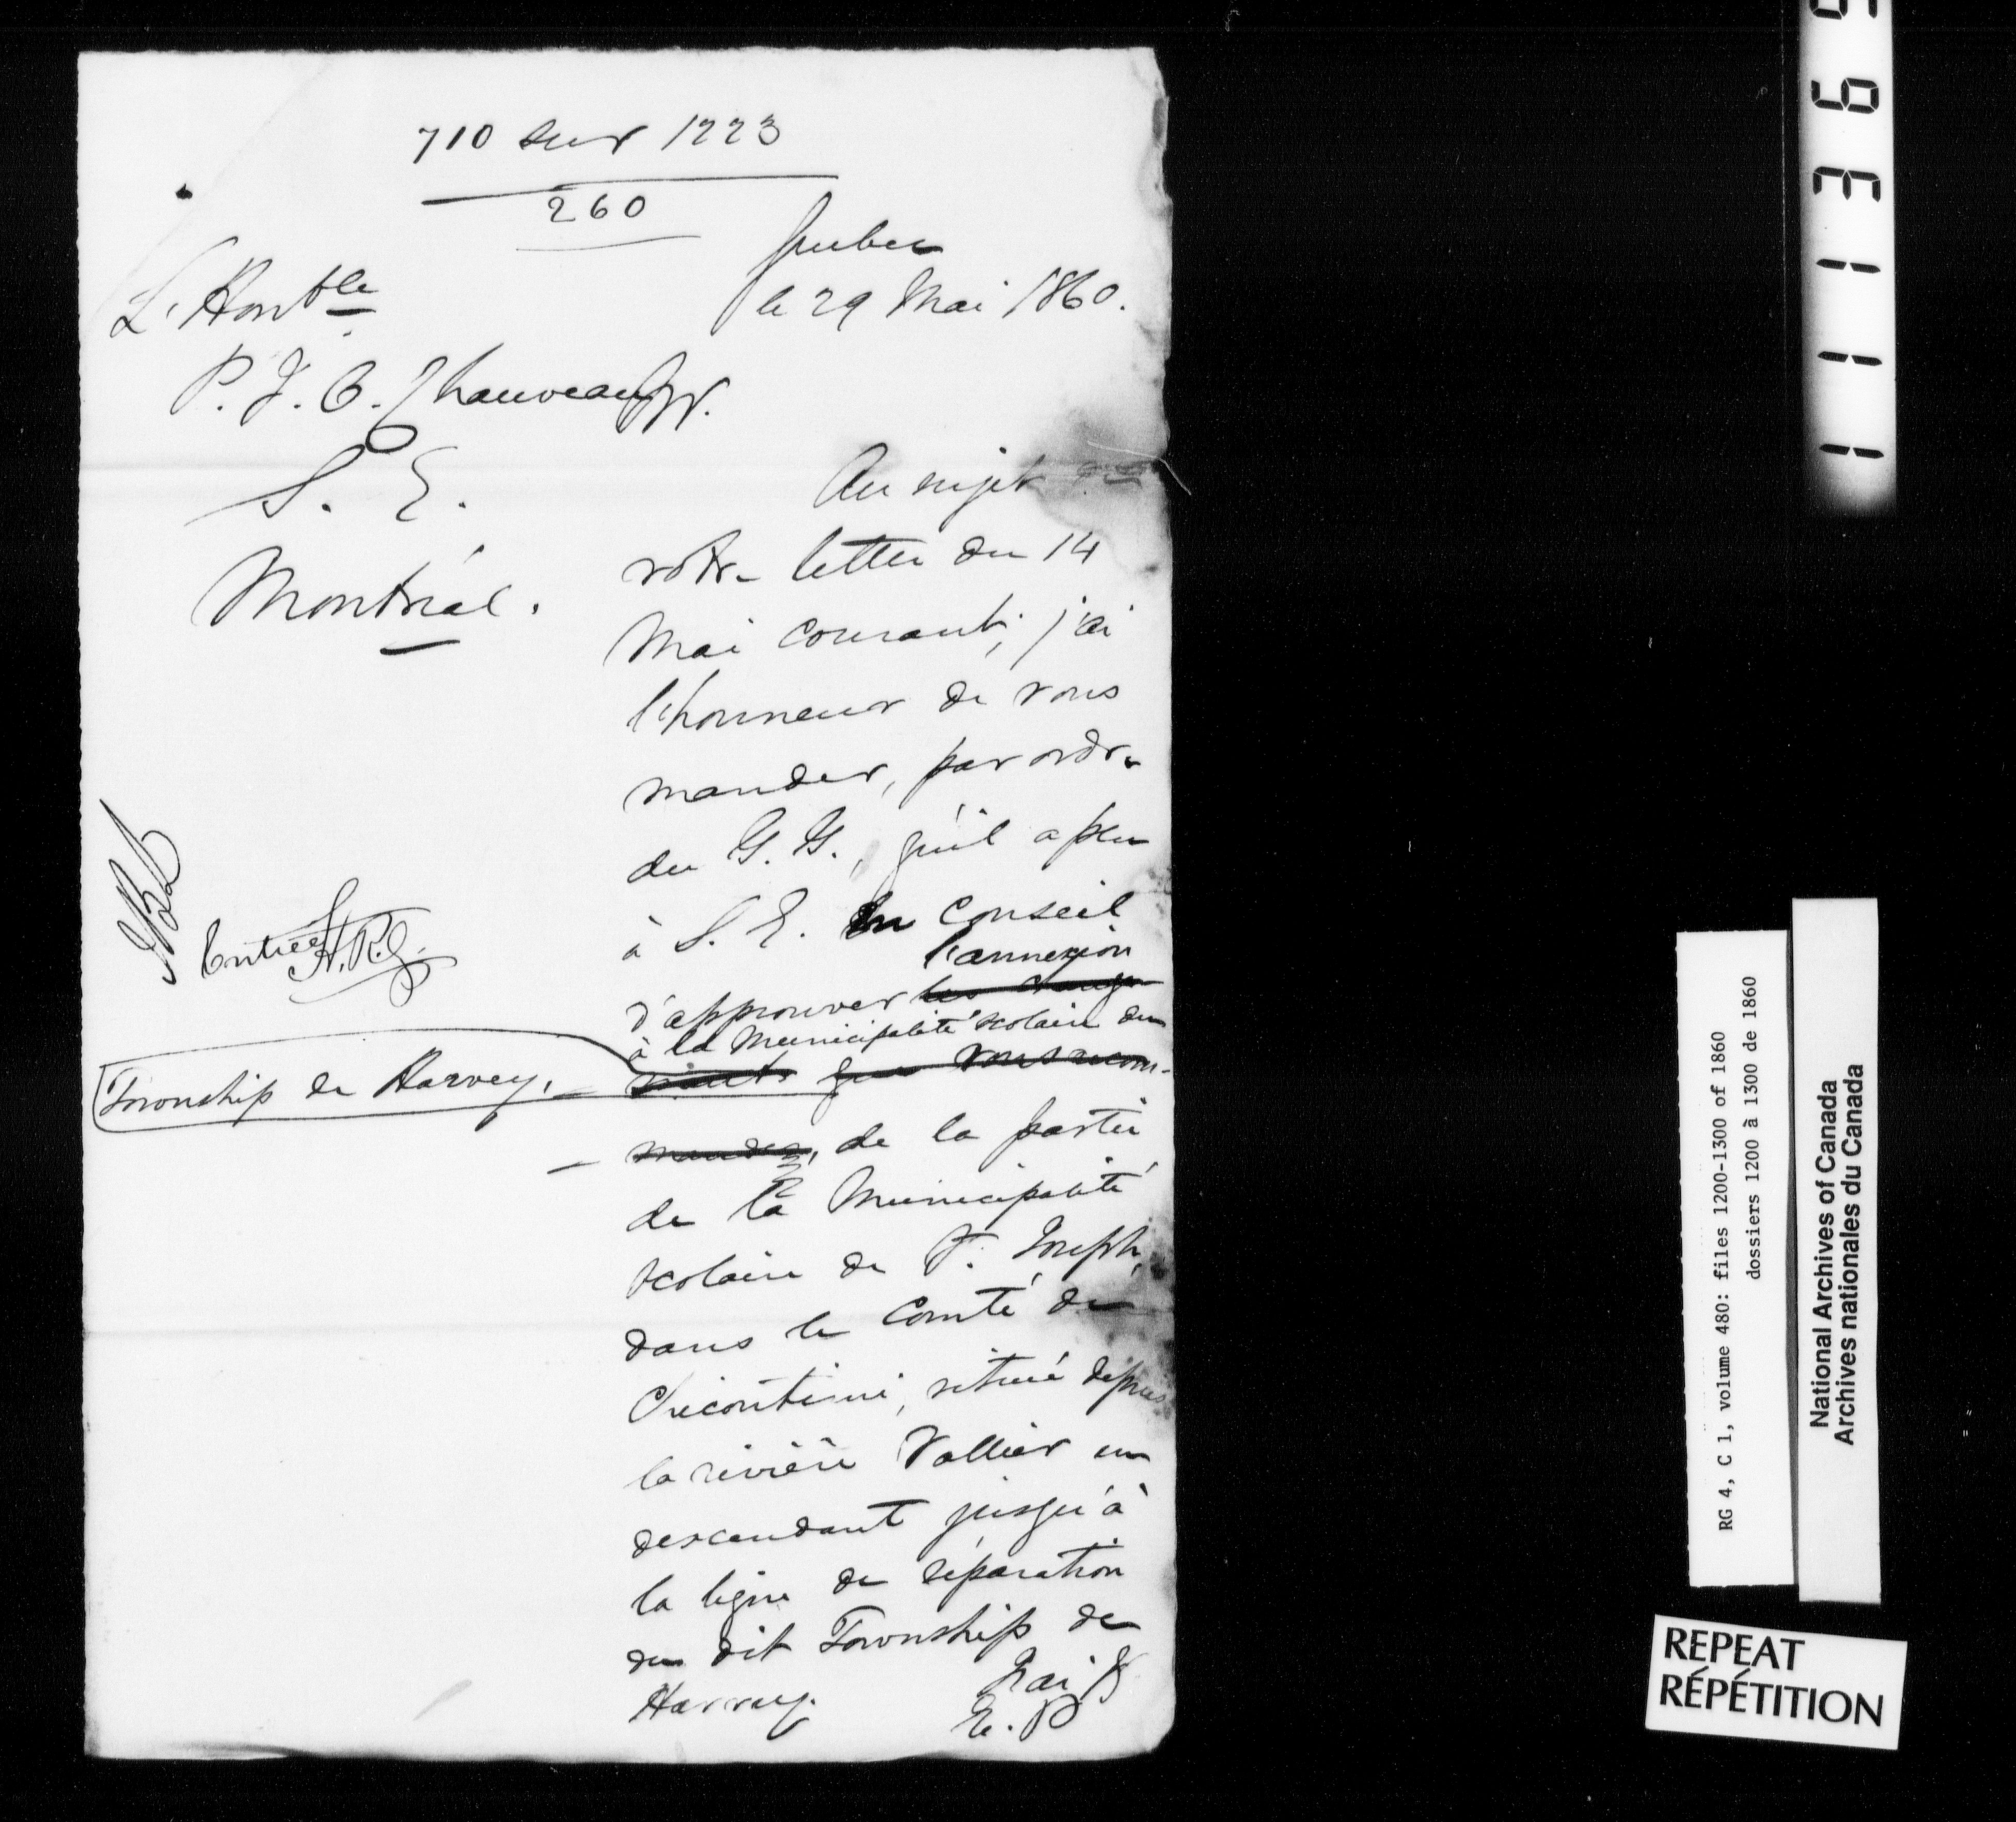 710 sur 1223
260
Quebec
le 29 Mai 1860.
L'Honble
P. J. O. Chauveau
S. E.
Montréal.
Au sujet de
votre lettre du 14
Mai courant, j'ai
l'honneur de vous
mander, par ordre
du G. G., qu'il a plu
à S. E. en Conseil
l'annexion
d'approuver les change
à la Municipalité scolaire du
Township de Harvey,
ments que vous recom-
mandez, de la partie
de la Municipalité
scolaire de St. Joseph,
dans le Comté de
Chicoutimi, situé depuis
la rivière Vallier en
descendant jusqu'à
la ligne de séparation
du dit Township de
Harvey.
J'ai &
E. P
Entrée
111369
RG 4, C 1, volume 480: files 1200-1300 of 1860
dossiers 1200 à 1300 de 1860
National Archives of Canada
Archives nationales du Canada
REPEAT
RÉPÉTITION